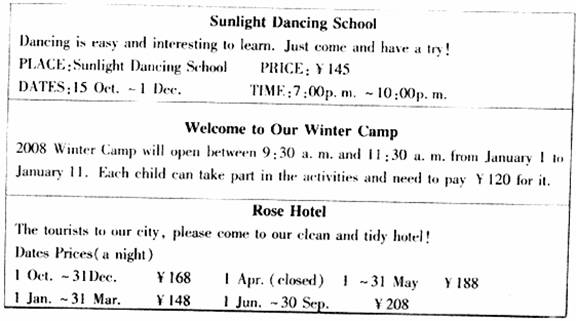 Sunlight Dancing School
Dancing is easy and interesting to learn. Just come and have a try!
PLACE:Sunlight Dancing School PRICE: ¥145
DATES:15 Oct. ~1 Dec. TIME:7:00p. m. ~10:00p. m.
Welcome to Our Winter Camp
2008 Winter Camp will open between 9:30 a. m. and 11:30 a. m. from January 1 to
January 11. Each child can take part in the activities and need to pay ¥120 for it.
Rose Hotel
The tourists to our city, please come to our clean and tidy hotel!
Dates Prices(a night)
1 Oct. ~31Dec. ¥168 1 Apr. (closed) 1 ~31 May ¥188
1 Jan. ~31 Mar. ¥148 1 Jun. ~30 Sep. ¥208